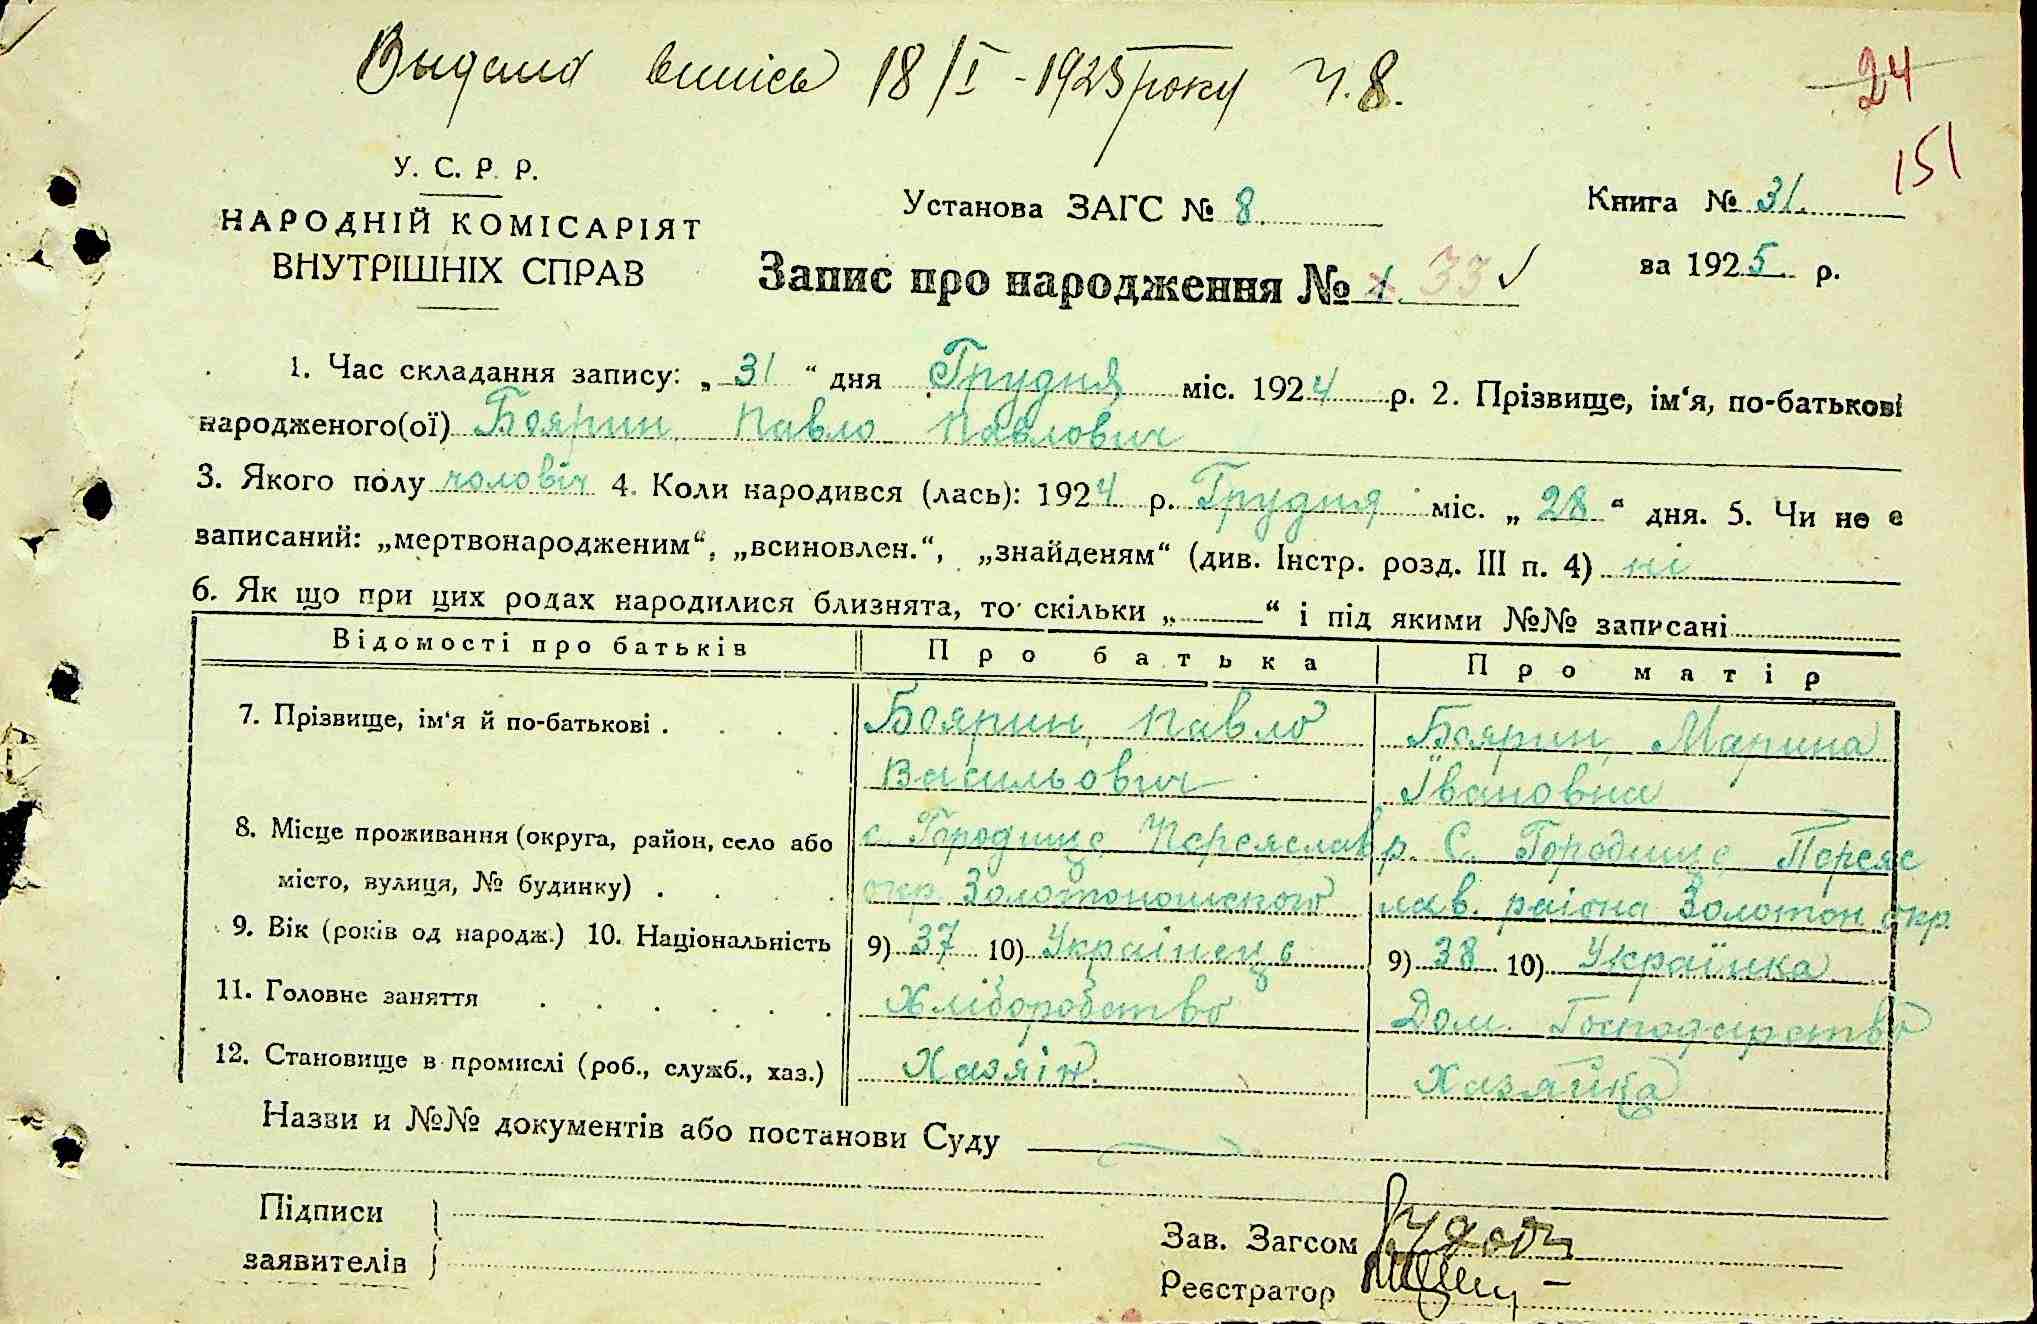 Выдана випись 18/I - 1925 року Ч. 8.
24
151
У. С. Р. Р.
НАРОДНІЙ КОМІСАРІЯТ
ВНУТРІШНІХ СПРАВ
Установа ЗАГС № 8.
Книга № 31.
за 1925 р.
Запис про народження № 33 ✓
1. Час складання запису: „ 31 “ дня Грудня міс. 1924 р. 2. Прізвище, ім‘я, по-батькові
народженого(ої) Боярин Павло Павлович
3. Якого полу чоловіч 4. Коли народився (лась): 1924 р. Грудня міс. „ 28 “ дня. 5. Чи не є
записаний: „мертвонародженим“, „всиновлен.“, „знайденям“ (див. Інстр. розд. III п. 4) ні
6. Як що при цих родах народилися близнята, то скільки „ — “ і під якими №№ записані
Відомості про батьків Про батька Про матір
7. Прізвище, ім‘я й по-батькові . Боярин, Павло Боярин, Марина
Васильович Івановна
8. Місце проживання (округа, район, село або с. Городище Переяслав р. С. Городище Переяс
місто, вулиця, № будинку) . окр. Золотоношського лав. раіона Золотон. окр.
9. Вік (років од народж.) 10. Національність 9) 37 10) Українець 9) 38 10) Українка
11. Головне заняття Хліборобство Дом. Господарство
12. Становище в промислі (роб., служб., хаз.) Хазяін. Хазяйка
Назви и №№ документів або постанови Суду
Підписи
заявителів
Зав. Загсом
Реєстратор